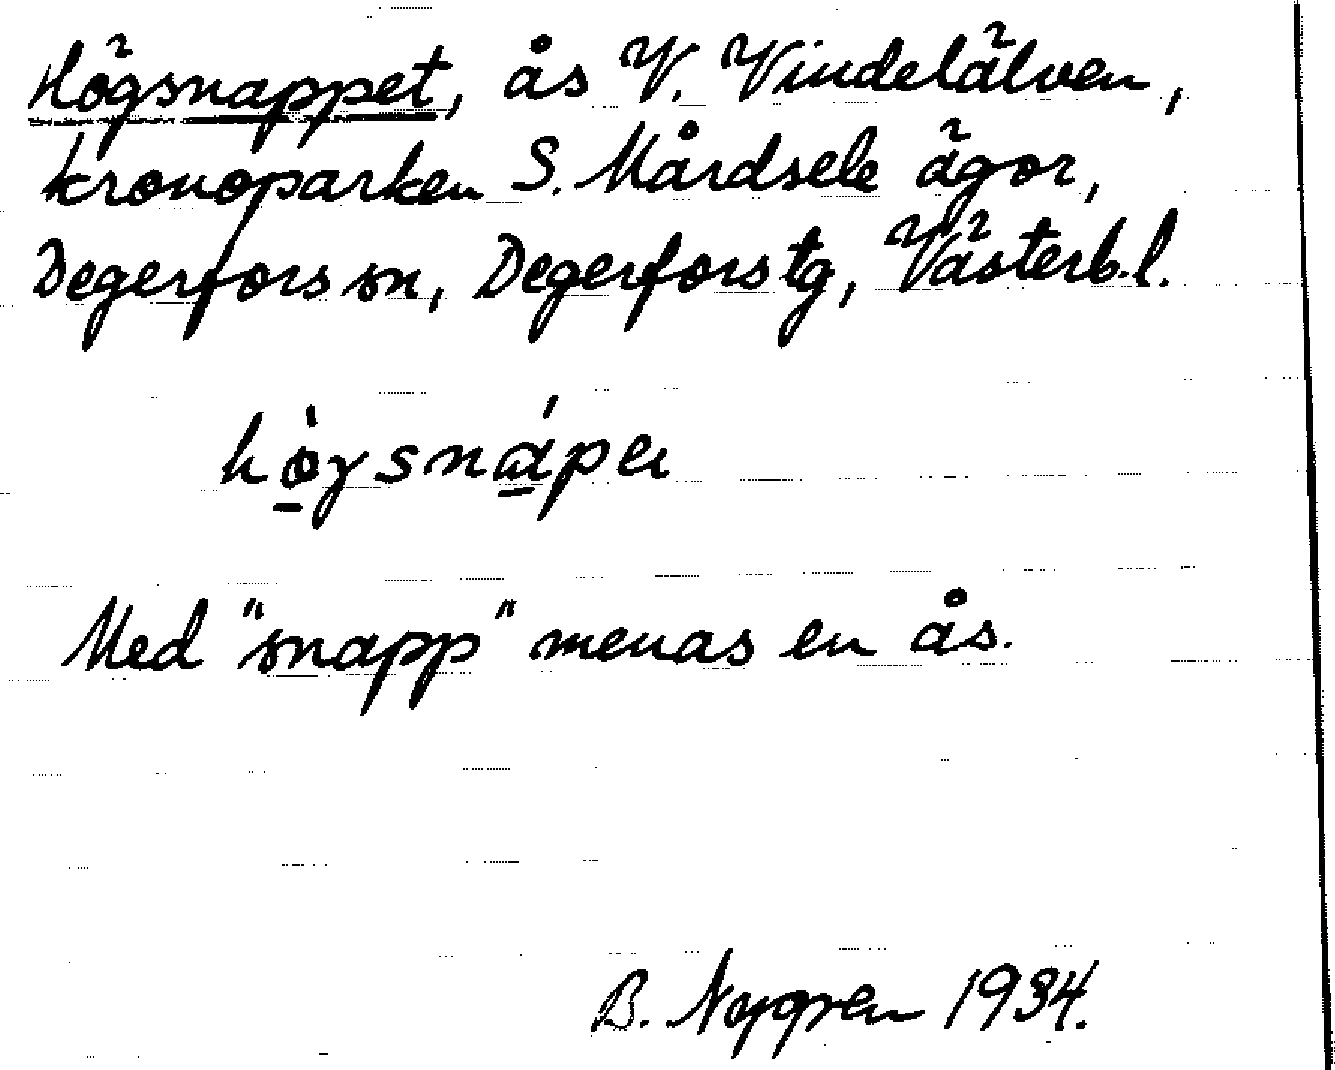 Högsnappet, ås V. Vindelälven,
kronoparken S. Mårdsele ägor,
Degerfors sn, Degerfors tg, Västerb. l.
Med "snapp" menas en ås.
B. Nygren 1934.